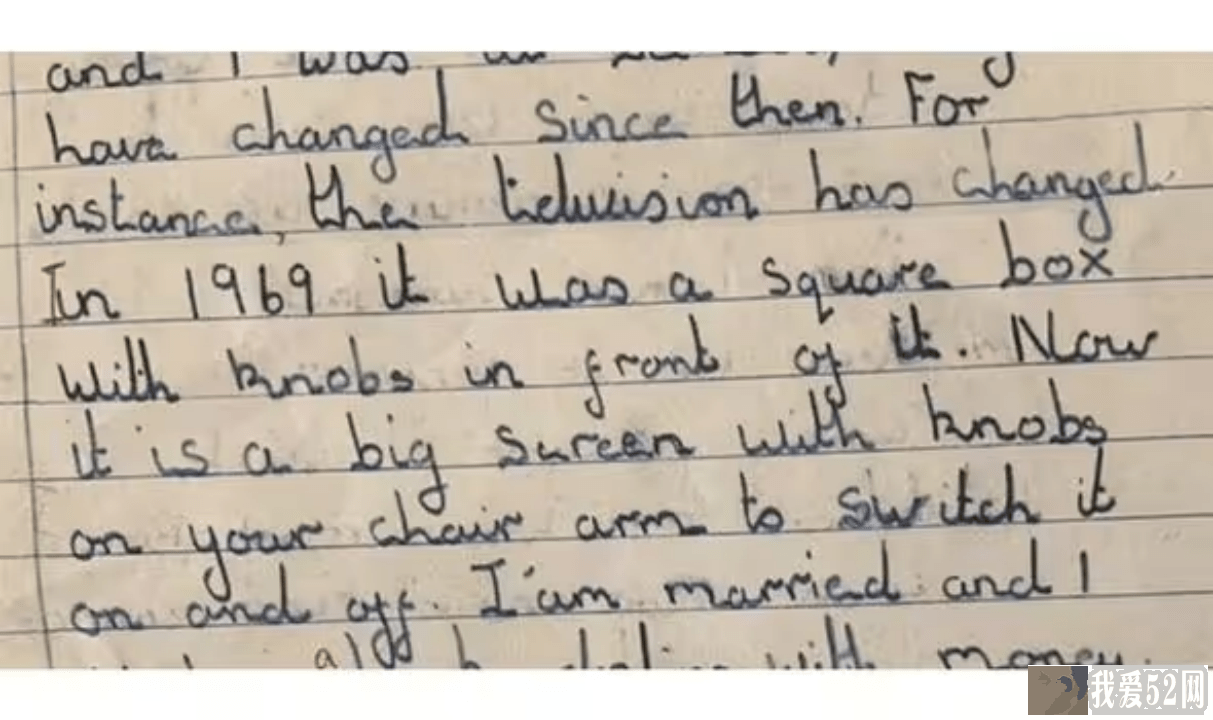 and I was
have changed since then. For
instance, the television has changed.
In 1969 it was a square box
with knobs in front of it. Now
it is a big screen with knobs
on your chair arm to switch it
on and off. I am married and I
with money.
我爱52网